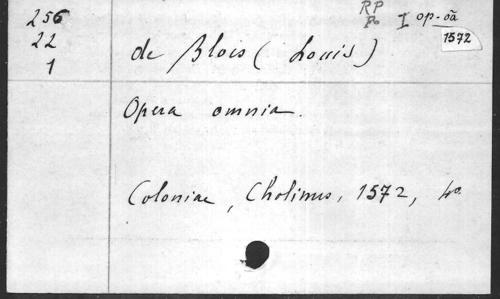 256
22
1
RP
Po I op. oā
1572
de Blois (Louis)
Opera omnia.
Coloniae, Cholinus, 1572, fo.